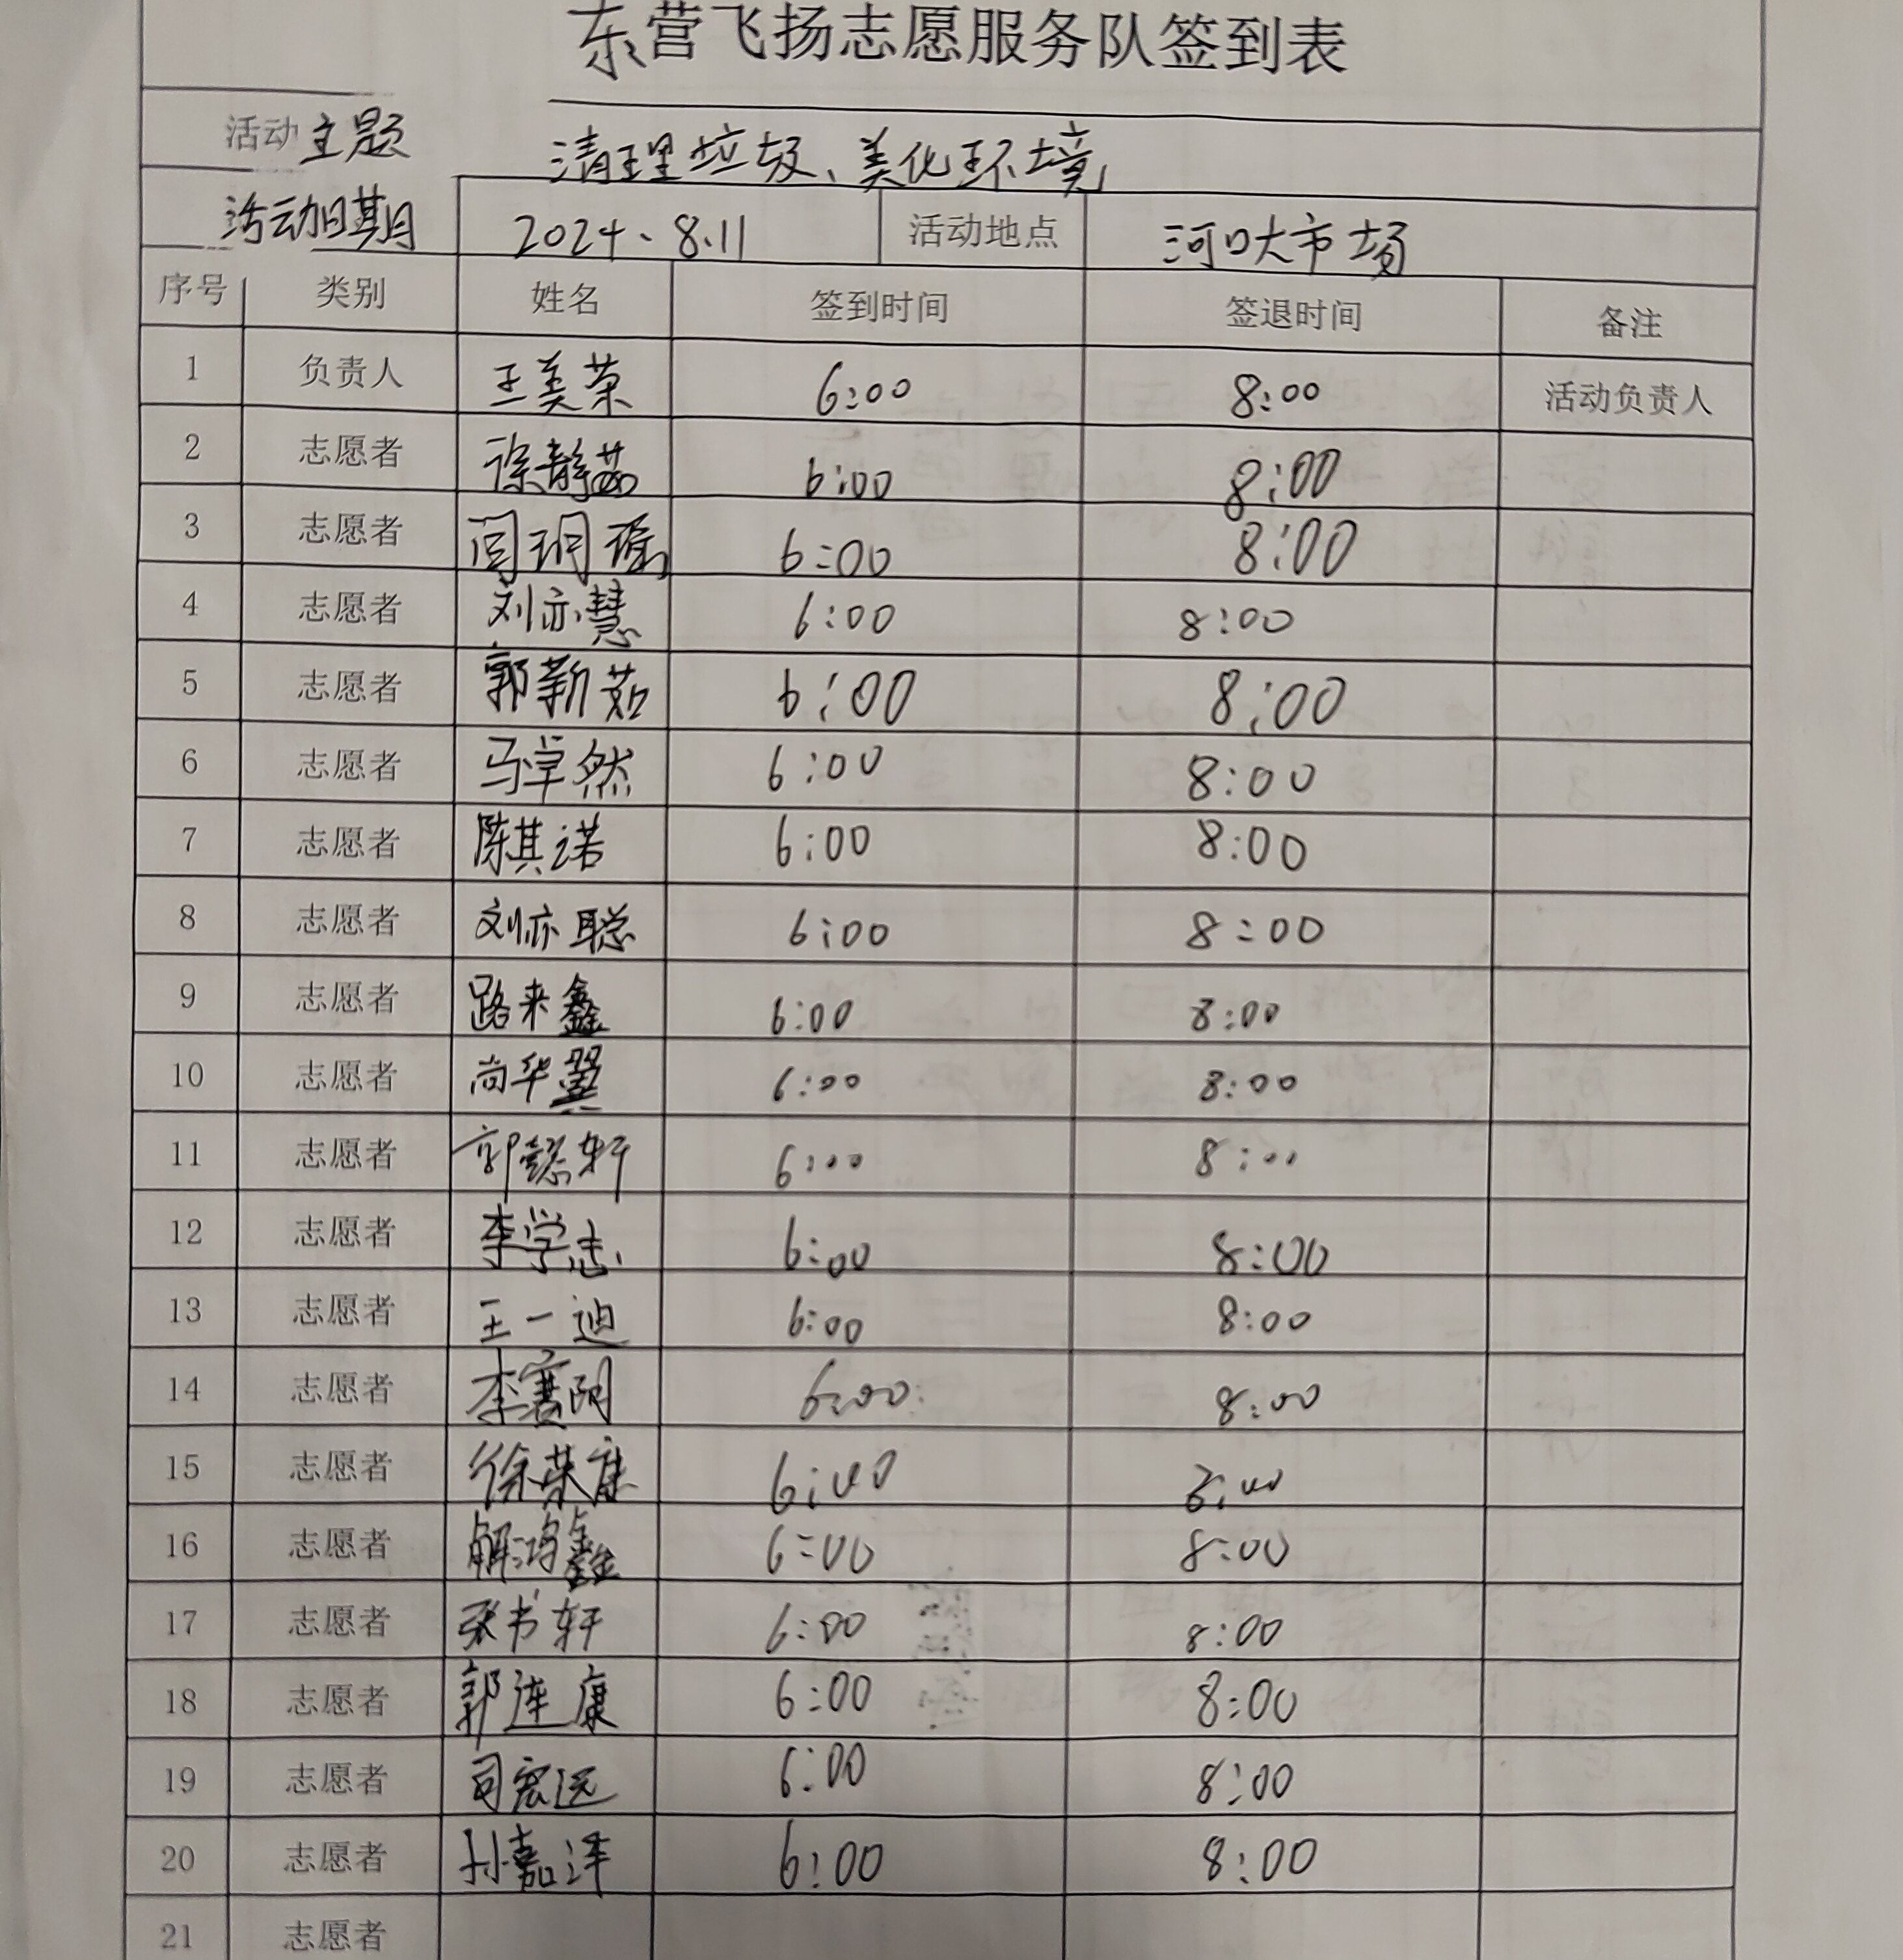 东营飞扬志愿服务队签到表
活动主题 清理垃圾、美化环境
活动日期 2024、8.11 活动地点 河口大市场
序号 类别 姓名 签到时间 签退时间 备注
1 负责人 王美荣 6:00 8:00 活动负责人
2 志愿者 徐静茹 6:00 8:00
3 志愿者 闫玥瑶 6:00 8:00
4 志愿者 刘亦慧 6:00 8:00
5 志愿者 郭新茹 6:00 8:00
6 志愿者 马卓然 6:00 8:00
7 志愿者 陈其诺 6:00 8:00
8 志愿者 刘亦聪 6:00 8:00
9 志愿者 路来鑫 6:00 8:00
10 志愿者 尚华翼 6:00 8:00
11 志愿者 郭懿轩 6:00 8:00
12 志愿者 李学志 6:00 8:00
13 志愿者 王一迪 6:00 8:00
14 志愿者 李赛阴 6:00 8:00
15 志愿者 徐荣康 6:00 8:00
16 志愿者 解鸿鑫 6:00 8:00
17 志愿者 张书轩 6:00 8:00
18 志愿者 郭连康 6:00 8:00
19 志愿者 司宏远 6:00 8:00
20 志愿者 孙嘉泽 6:00 8:00
21 志愿者